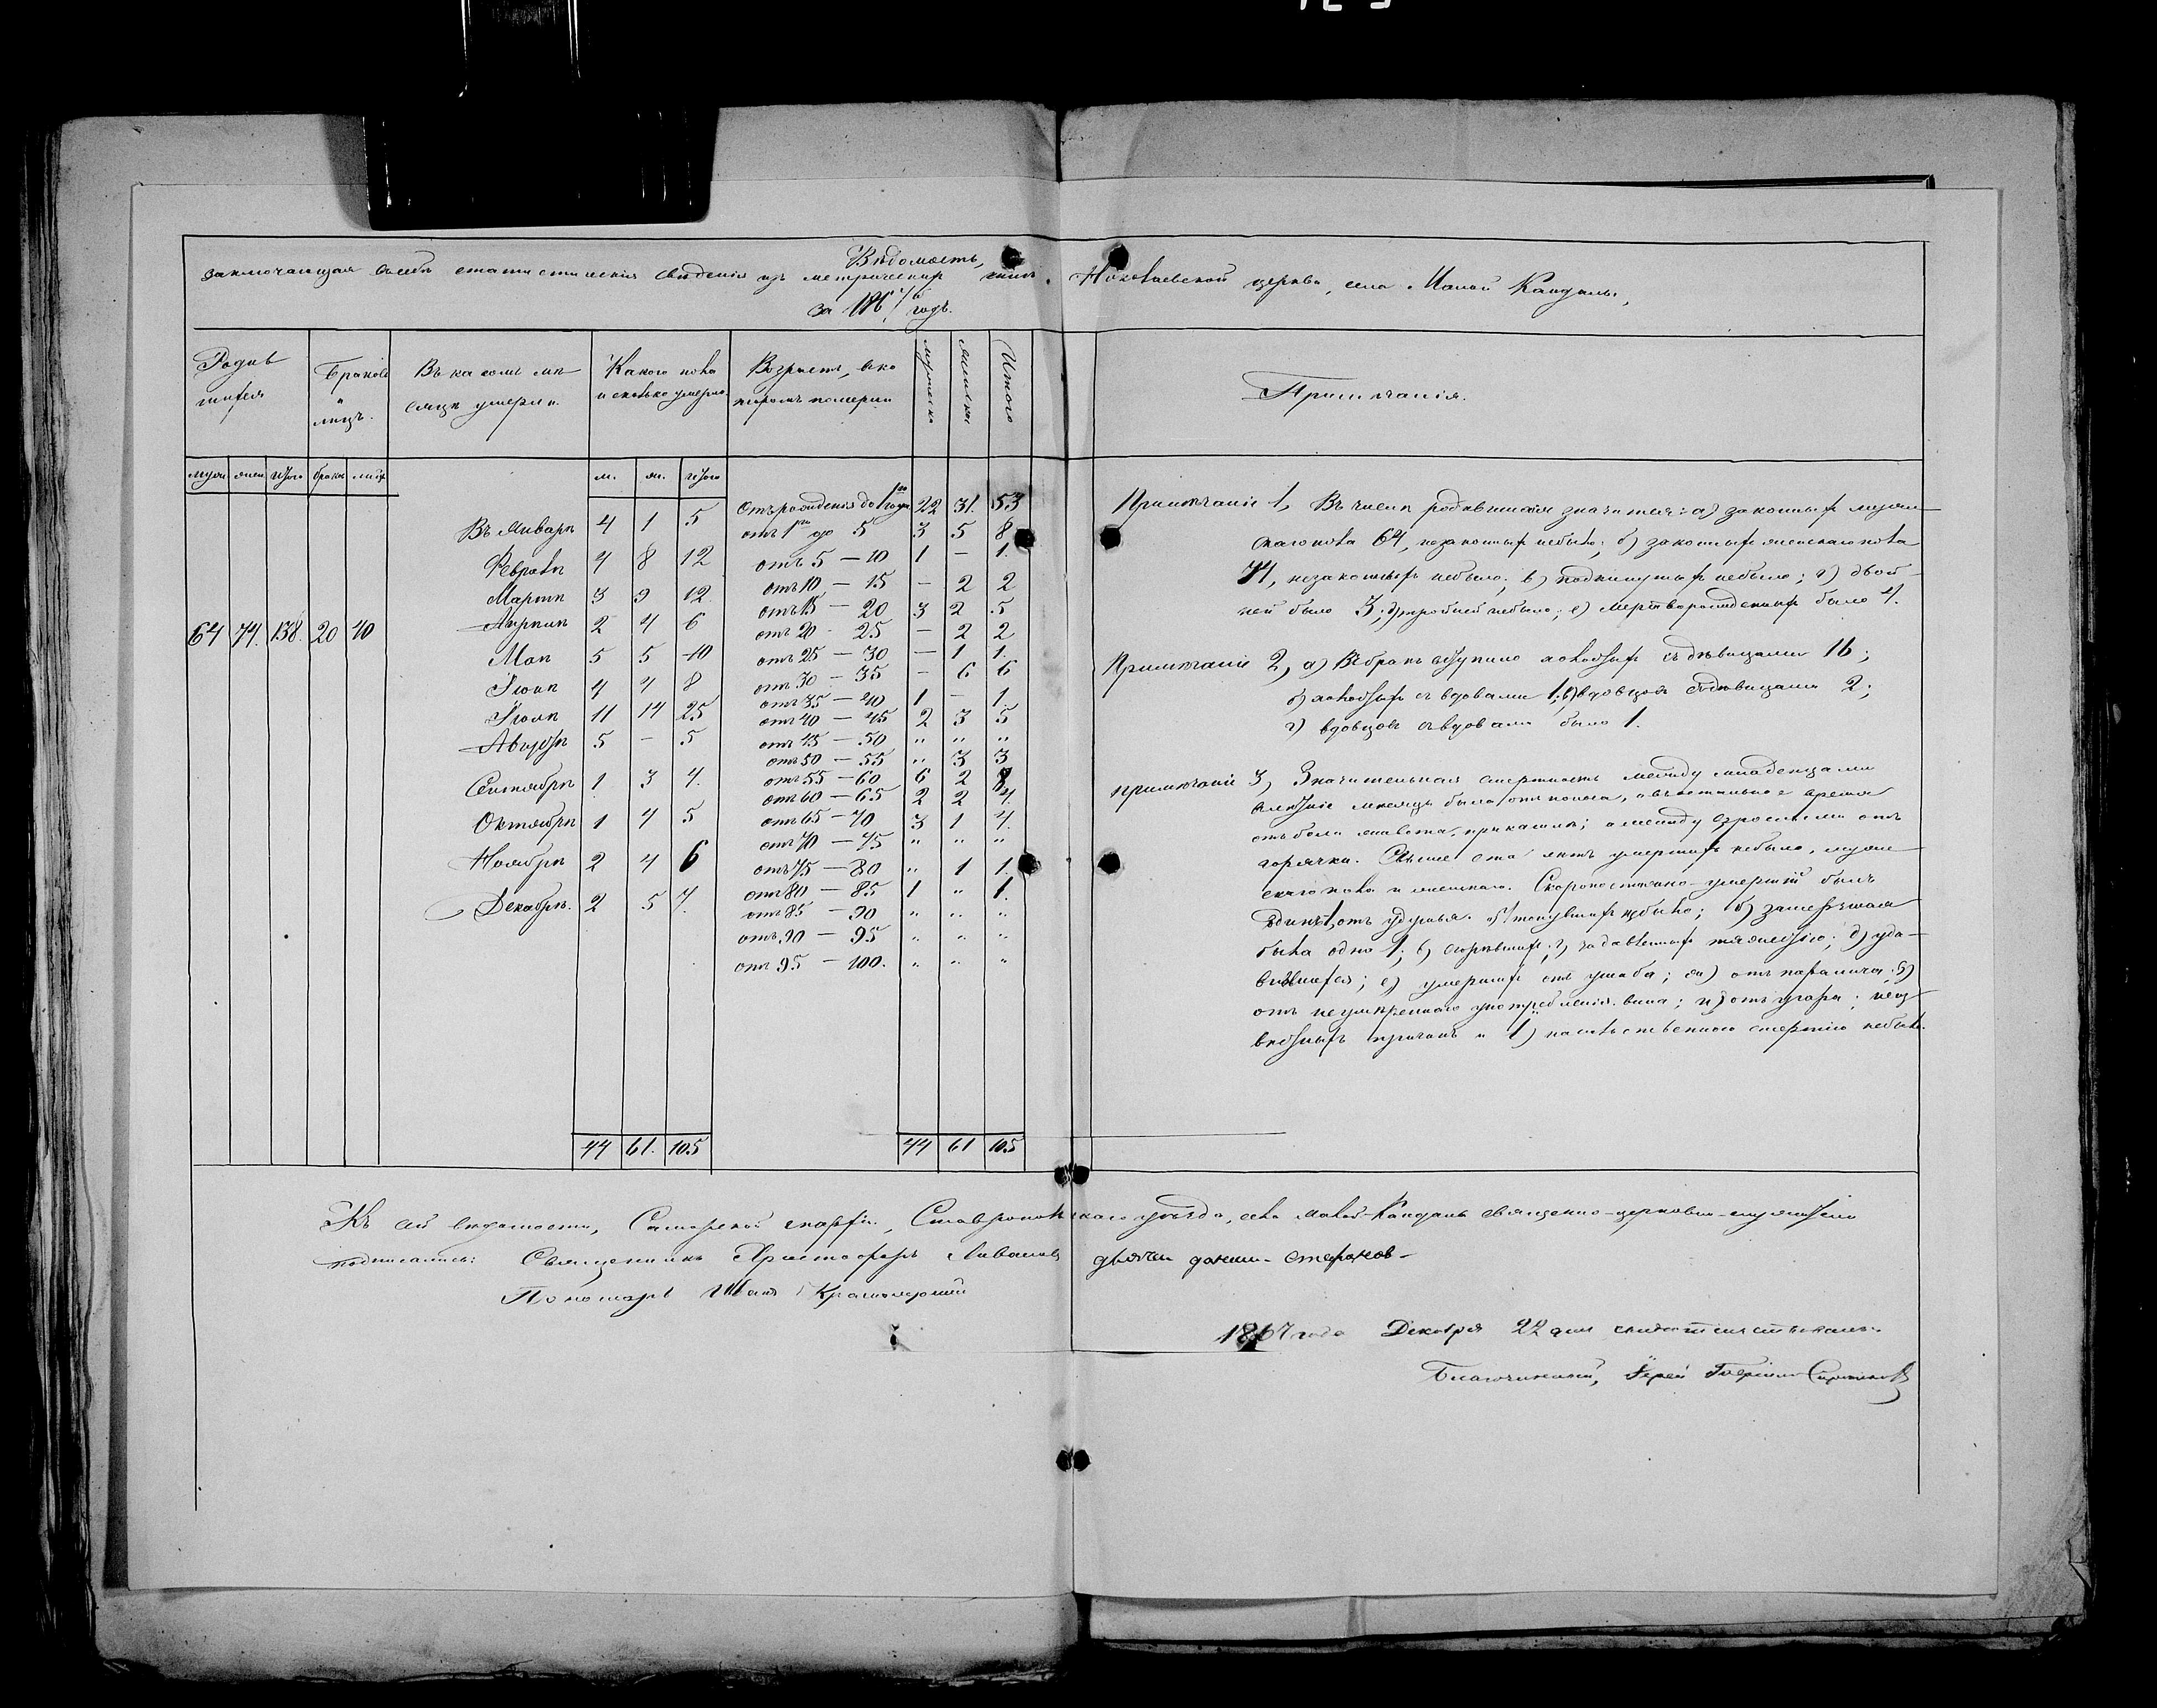 Вѣдомость,
заключающая въ себѣ статистическія свѣденія изъ метрическихъ книгъ Николаевской церкви, села Малой Кандалы,
за 1867 годъ.
Родив
шихся
Браковъ
и
лицъ.
Въ какомъ мѣ
сяцѣ умерли.
Какого пола
и сколько умерло
Возрастъ, въ ко
торомъ померли
мужеска
женска
Итого
Примѣчанія.
муж жен итого браки лицъ
м. ж. итого
64 74. 138. 20 40
Въ Январѣ 4 1 5
Февралѣ 4 8 12
Мартѣ 3 9 12.
Апрѣлѣ 2 4 6
Маѣ 5 5 10
Іюнѣ 4 4 8
Іюлѣ 11 14 25
Августѣ 5 – 5
Сентябрѣ 1 3 4.
Октябрѣ 1 4 5
Ноябрѣ 2 4 6
Декабрѣ. 2 5 7.
44 61. 105
Отъ рожденія до 1го года 22 31. 53
отъ 1го до 5 3 5 8
отъ 5 – 10 1 – 1.
отъ 10 – 15 – 2 2
отъ 15 – 20 3 2 5
отъ 20 – 25 – 2 2
отъ 25 – 30 – 1 1.
отъ 30 – 35 – 6 6
отъ 35 – 40 1 – 1.
отъ 40 – 45 2 3 5
отъ 45 – 50 " " "
отъ 50 – 55 " 3 3
отъ 55 – 60 6 2 8
отъ 60 – 65 2 2 4.
отъ 65 – 70 3 1 4.
отъ 70 – 75 " " "
отъ 75 – 80 " 1 1.
отъ 80 – 85 1 " 1.
отъ 85 – 90 " " "
отъ 90 – 95 " " "
отъ 95 – 100. " " "
44 61 105
Примѣчаніе 1, Въ числѣ родившихся значится: а) законныхъ муже
скаго пола 64, незаконныхъ небыло; б) законныхъ женскаго пола
74, незаконныхъ небыло; в) подкинутыхъ небыло; г) двой
ней было 3; д) тройней небыло; е) мертворожденныхъ было 4.
Примѣчаніе 2, а) Въ бракъ вступило холостыхъ съ дѣвицами 16;
б) холостыхъ съ вдовами 1; в) вдовцовъ съ дѣвицами 2;
г) вдовцовъ съ вдовами было 1.
Примѣчаніе 3, Значительная смертность между младенцами
въ лѣтніе мѣсяцы была отъ поноса, а въ остальное время
отъ боли живота, при кашлѣ; а между взрослыми отъ
горячки. Свыше ста лѣтъ умершихъ небыло, муже
скаго пола и женскаго. Скоропостижно-умершій былъ
одинъ 1, отъ удушья. а) утонувшихъ небыло; б) замерзшая
была одна 1; в) сгорѣвшихъ; г) задавленныхъ тяжестію; д) уда
вившихся; е) умершихъ отъ ушиба; ж) отъ паралича; з)
отъ неумѣреннаго употребленія вина; и) отъ угара; неиз
вѣстныхъ причинъ и і) насильственною смертію небыло.
Къ сей вѣдомости, Самарской епархіи, Ставропольскаго уѣзда, села Малой-Кандалы священно-церковно-служители
подписались: Священникъ Христофоръ Ливановъ дьячекъ Стефановъ
Пономарь Иванъ
1867 года Декабря 22 дня свидѣтельствовалъ.
Благочинный, Іерей